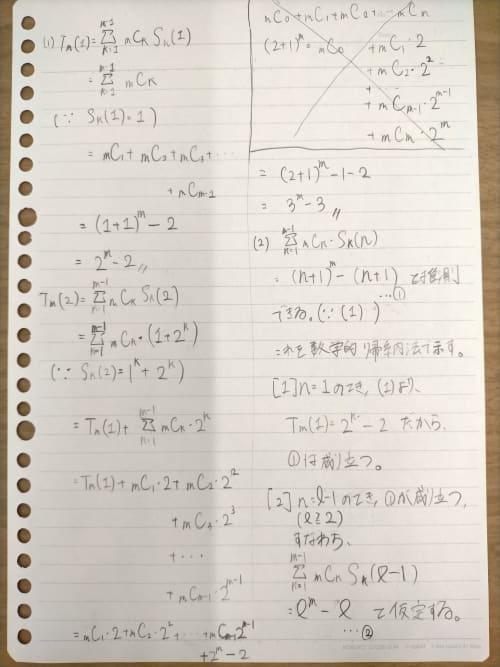 (1) Tm(1)=Σ[k=1, m-1] mCk Sk(1)
= Σ[k=1, m-1] mCk
(∵ Sk(1)=1)
= mC1+ mC2+mC3+ ‥
+ mCm-1
= (1+1)^m - 2
= 2^m - 2 〃
Tm(2)=Σ[k=1, m-1] mCk Sk(2)
= Σ[k=1, m-1] mCk・(1+2^k)
(∵ Sk(2)=1^k + 2^k)
= Tm(1)+ Σ[k=1, m-1] mCk・2^k
= Tm(1)+ mC1・2+ mC2・2^2
+ mC3・2^3
+ ‥
+ mCm-1・2^m-1
= mC1・2+mC2・2^2 + ‥ +mCm-1 2^m-1
+2^m - 2
mC0 + mC1 + mC2 + ‥ mCm
(2+1)^m = mC0 + mC1・2
+ mC2・2^2
+
+ mCm-1・2^m-1
+ mCm・2^m
= (2+1)^m - 1 - 2
= 3^m - 3 〃
(2) Σ[k=1, m-1] mCk・Sk(n)
= (n+1)^m - (n+1) と推測
…①
できる。(∵ (1))
これを数学的帰納法で示す。
[1] n=1のとき, (1)より,
Tm(1)= 2^k - 2 だから
①は成り立つ。
[2] n=l-1のとき, ①が成り立つ,
(l≧2)
すなわち、
Σ[k=1, m-1] mCk Sk(l-1)
= l^m - l で仮定する。
…②